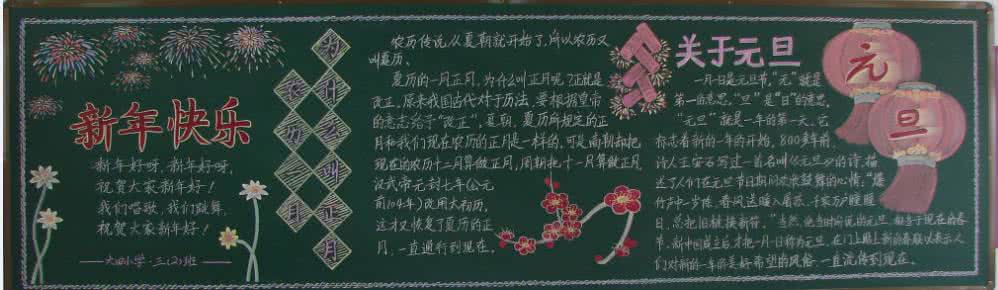 新年快乐
新年好呀,新年好呀,
祝贺大家新年好!
我们唱歌,我们跳舞,
祝贺大家新年好!
大田小学·三(2)班
农历一月
为什么叫正月
农历传说从夏朝就开始了,所以农历又
叫夏历。
夏历的一月正月,为什么叫正月呢?正就是
改正,原来我国古代对于历法,要根据皇帝
的意志给予“改正”,夏朝,夏历所规定的正
月和我们现在农历的正月是一样的,可是商朝却把
现在的农历十二月算做正月,周朝把十一月算做正月
汉武帝元封七年(公元
前104年)改用太初历,
这才又恢复了夏历的正
月,一直通行到现在。
关于元旦
一月一日是元旦节,“元”就是
第一的意思,“旦”是“日”的意思。
“元旦”就是一年的第一天,它
标志着新的一年的开始,800多年前,
诗人王安石写过一首名叫《元旦》的诗,描
述了人们在元旦节日期间欢欣鼓舞的心情:“爆
竹声中一岁除,春风送暖入屠苏,千家万户瞳瞳
日,总把旧桃换新符。”当然,他当时所说的元旦,相当于现在的春
节,新中国成立后,才把一月一日称为元旦,在门上贴上新的春联以表示人
们对新的一年的美好希望的风俗,一直流传到现在。
元
旦